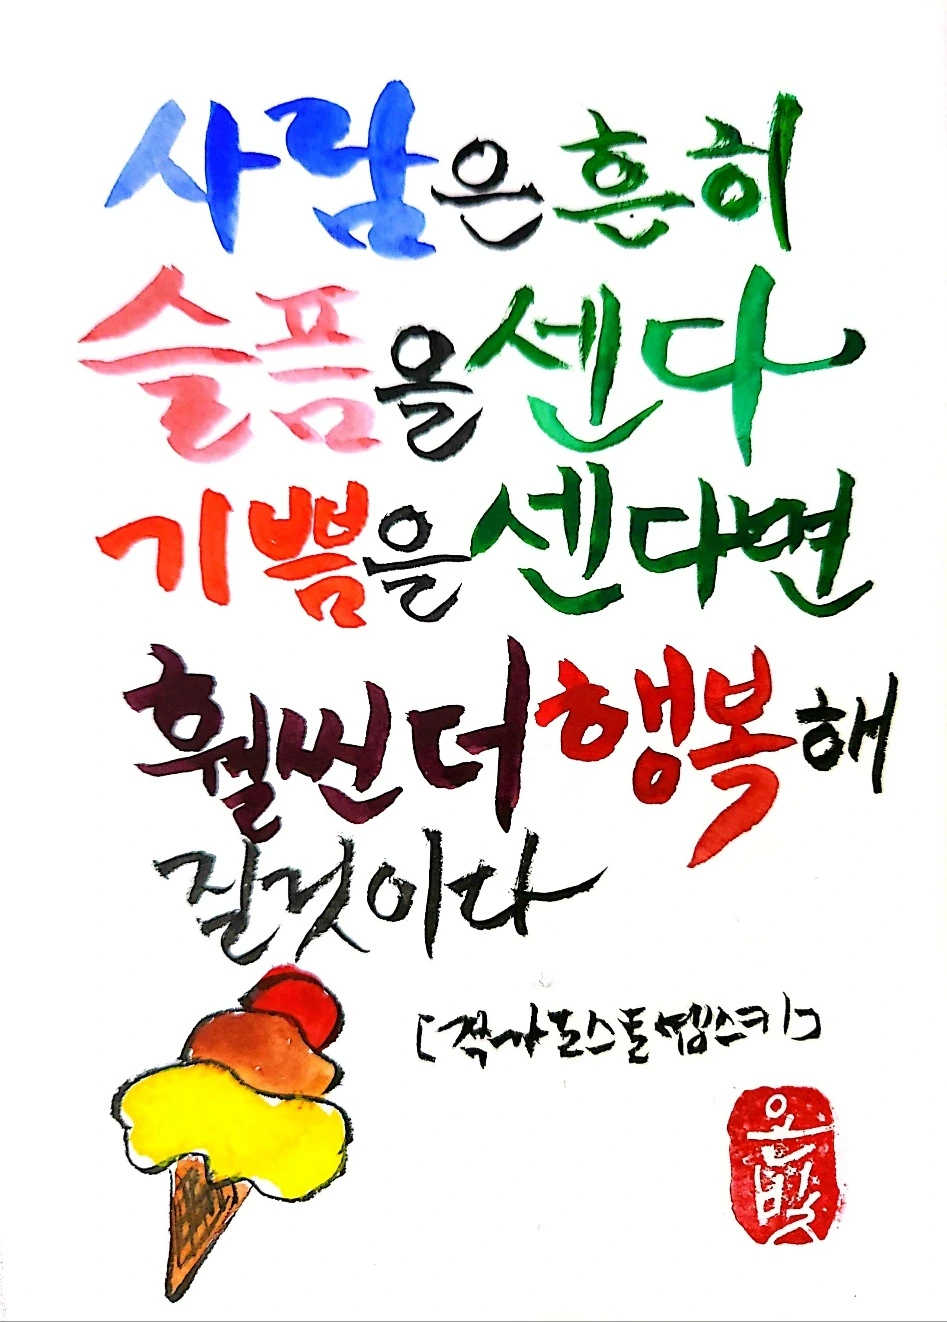 사람은 흔히
슬픔을 센다
기쁨을 센다면
훨씬 더 행복해
질것이다
[작가 도스토옙스키]
은빛